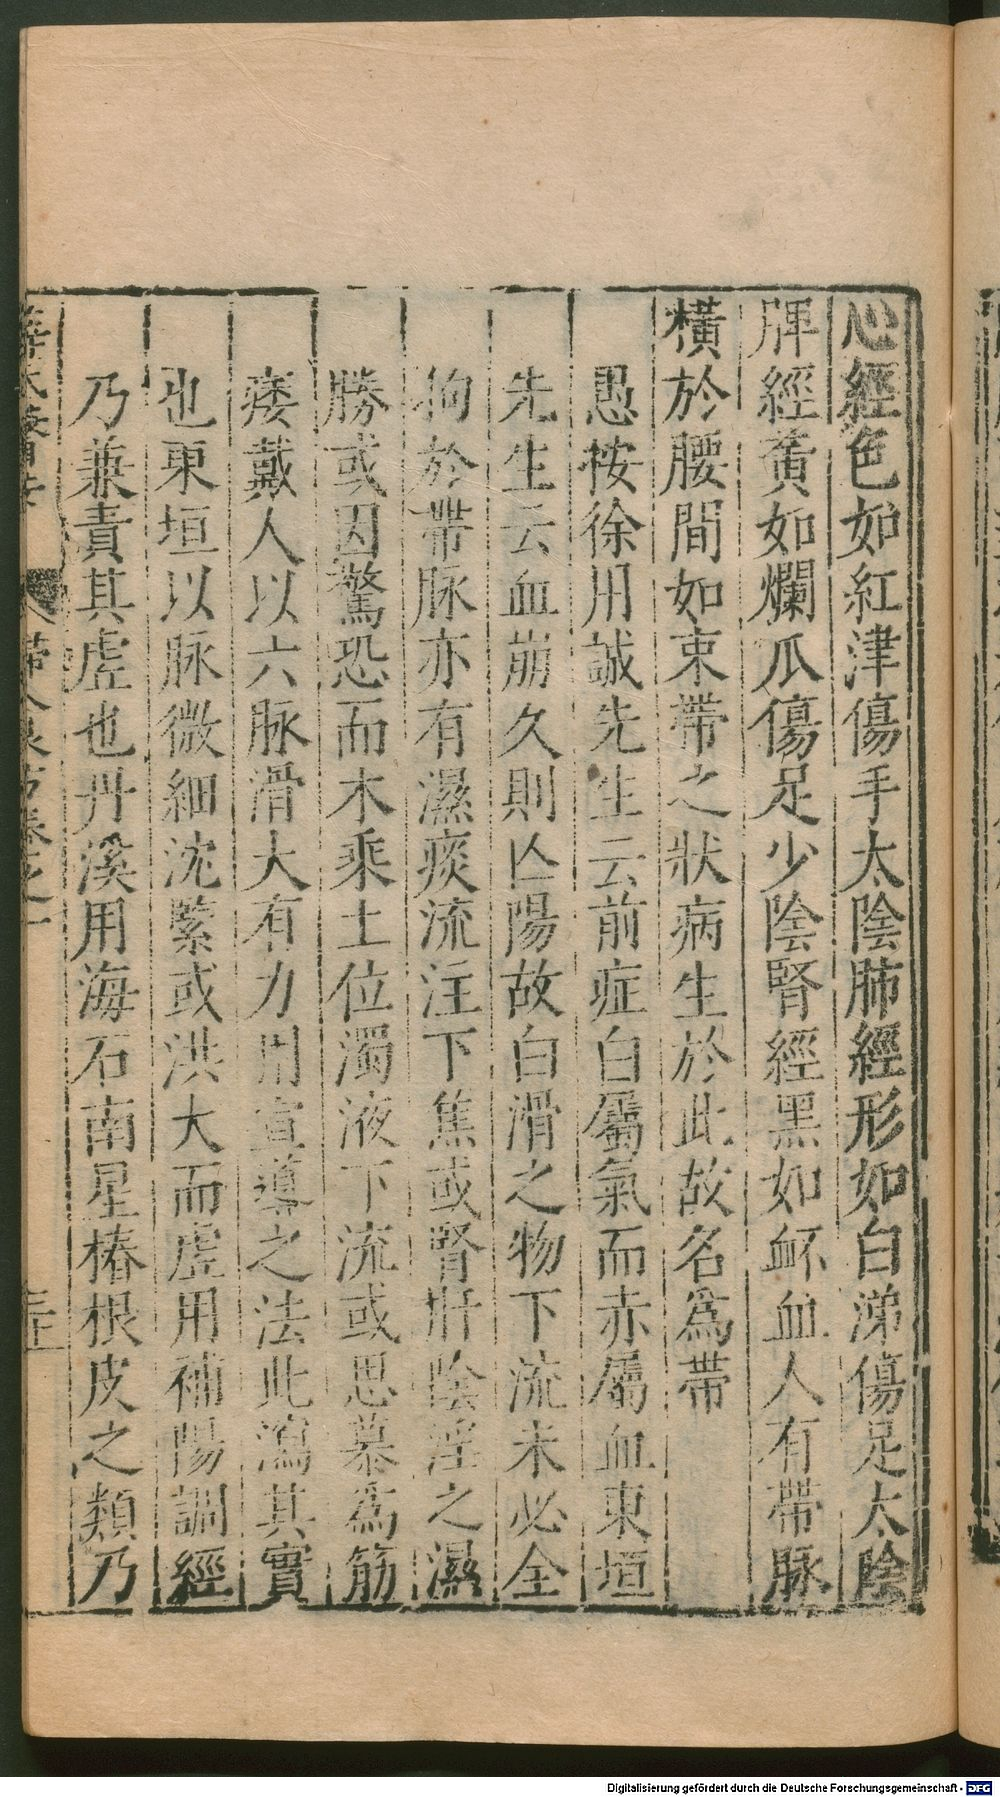 心經色如紅津傷手太陰肺經形如白涕傷足太陰
脾經黃如爛瓜傷足少陰腎經黑如衃血人有帶脉
橫於腰間如束帶之狀病生於此故名為帶
愚按徐用誠先生云前症白屬氣而赤屬血東垣
先生云血崩久則亾陽故白滑之物下流未必全
拘於帶脉亦有濕痰流注下焦或腎肝陰淫之濕
勝或因驚恐而木乘土位濁液下流或思慕為筋
痿戴人以六脉滑大有力用宣導之法此瀉其實
也東垣以脉微細沈緊或洪大而虛用補陽調經
乃兼責其虛也丹溪用海石南星椿根皮之類乃
Digitalisierung gefördert durch die Deutsche Forschungsgemeinschaft - DFG